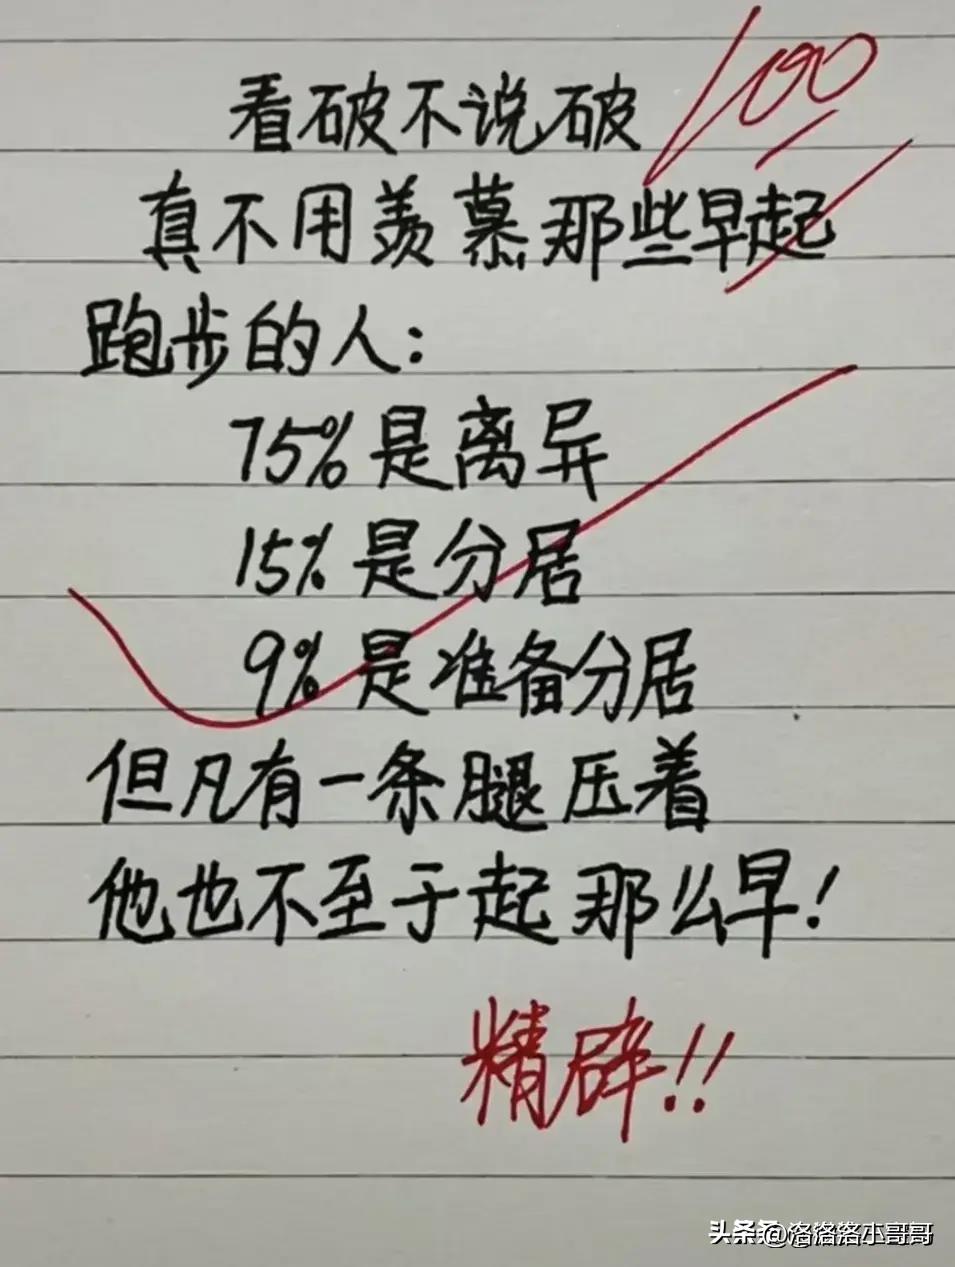 100
看破不说破
真不用羡慕那些早起
跑步的人:
75%是离异
15%是分居
9%是准备分居
但凡有一条腿压着
他也不至于起那么早!
精辟!!
头条 @洛洛洛小哥哥